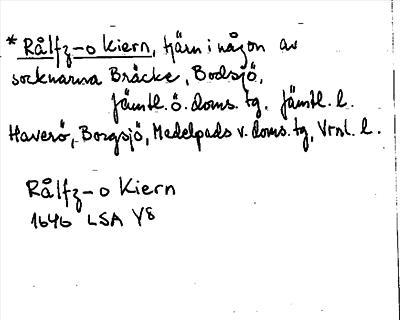 * Rålfz-o Kiern, tjärn i någon av
socknarna Bräcke, Bodsjö,
Jämtl. ö. doms. tg, Jämtl. l.
Haverö, Borgsjö, Medelpads v. doms. tg, Vrnl. l.
Rålfz-o Kiern
1646 LSA Y8